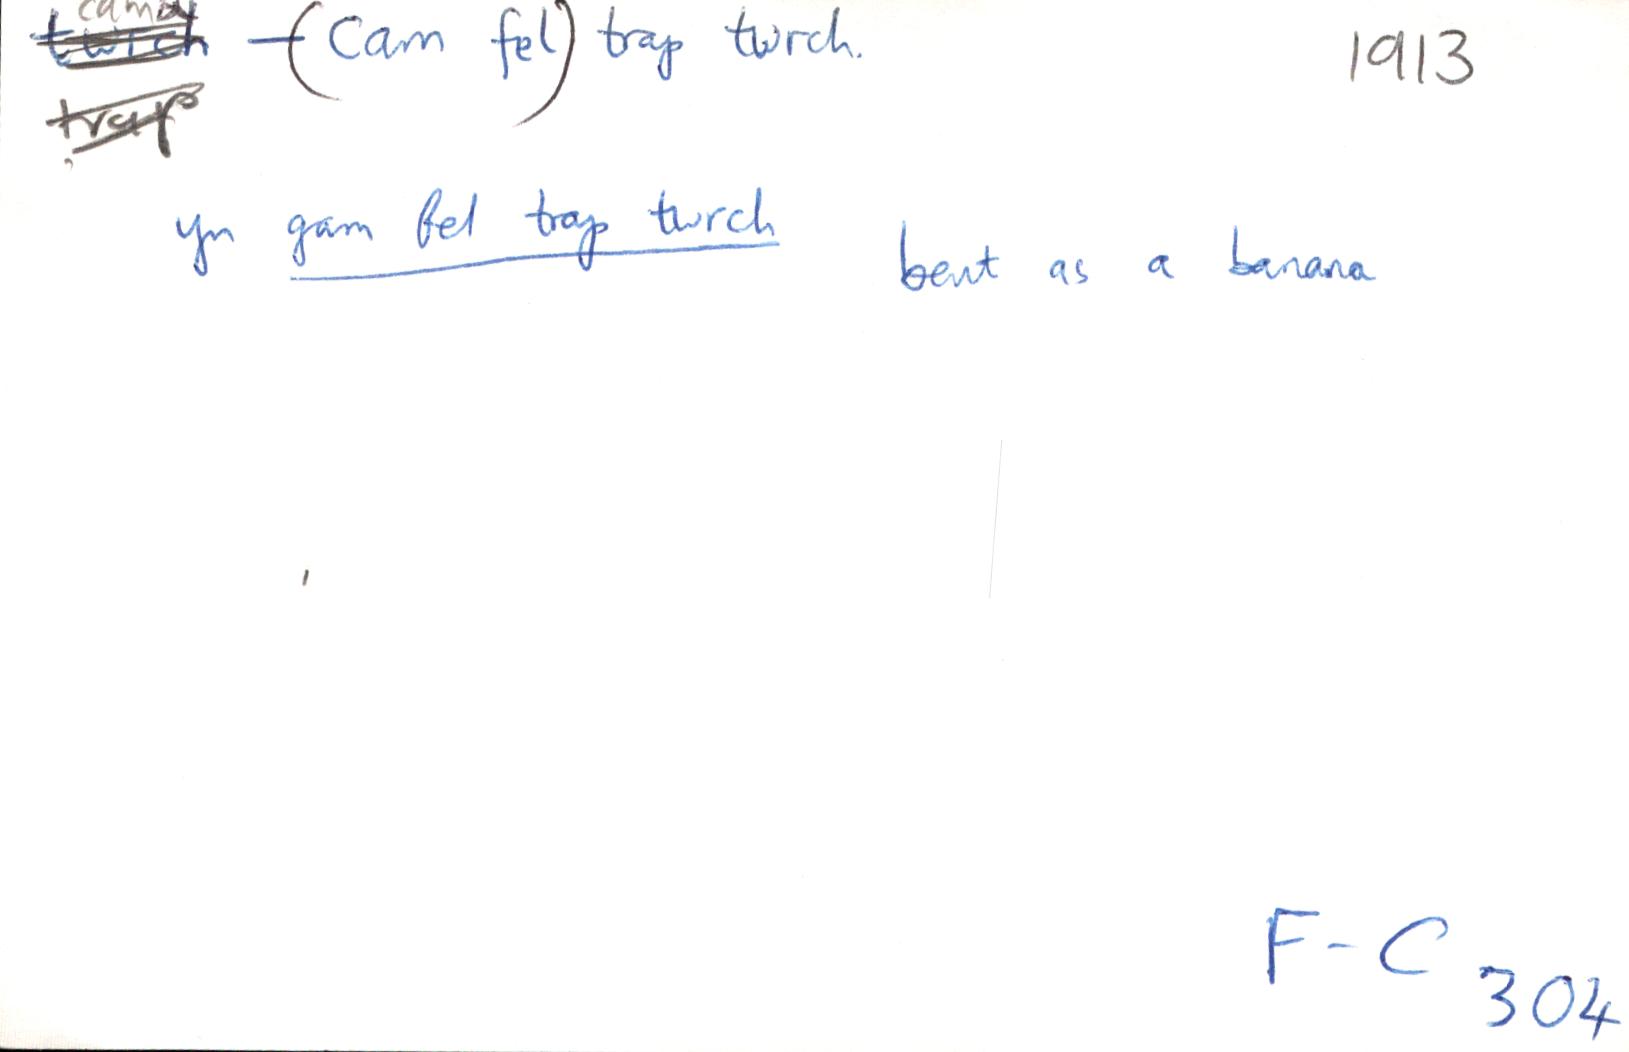 twrch – (Cam fel) trap twrch. 1913
trap
yn gam fel trap twrch bent as a banana
F-C 304